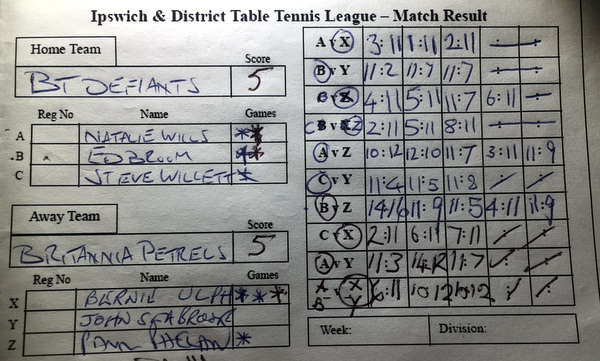 Ipswich & District Table Tennis League – Match Result
Home Team
Score
BT DEFIANTS 5
Reg No Name Games
A NATALIE WILLS **
B ED BROOM **
C STEVE WILLETT *
Away Team
Score
BRITANNIA PETRELS 5
Reg No Name Games
X BERNIE ULPH ***
Y JOHN SEABROOK
Z PAUL PHELAN *
A v X 3:11 1:11 2:11
B v Y 11:2 11:7 11:7
4:11 5:11 11:7 6:11
2:11 5:11 8:11
A v Z 10:12 12:10 11:7 3:11 11:9
C v Y 11:4 11:5 11:8
B v Z 14:16 11:9 11:5 4:11 11:9
C v X 2:11 6:11 7:11
A v Y 11:3 14:12 11:7
A B X Y 6:11 10:12 10:12
Week: Division: